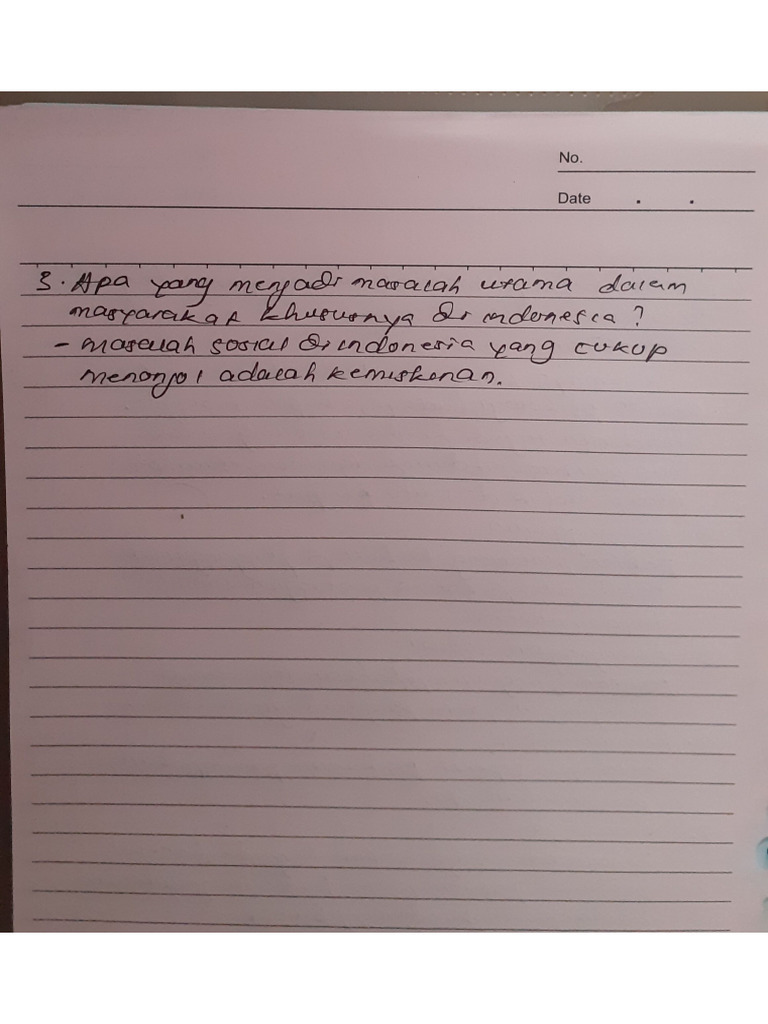 No.
Date . .
3. Apa yang menjadi masalah utama dalam
masyarakat khususnya di indonesia?
- masalah sosial di indonesia yang cukup
menonjol adalah kemiskinan.